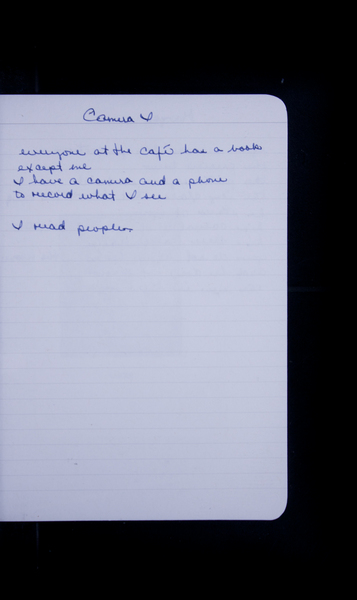 Camera I
everyone at the café has a book
except me
I have a camera and a phone
to record what I see
I read people.